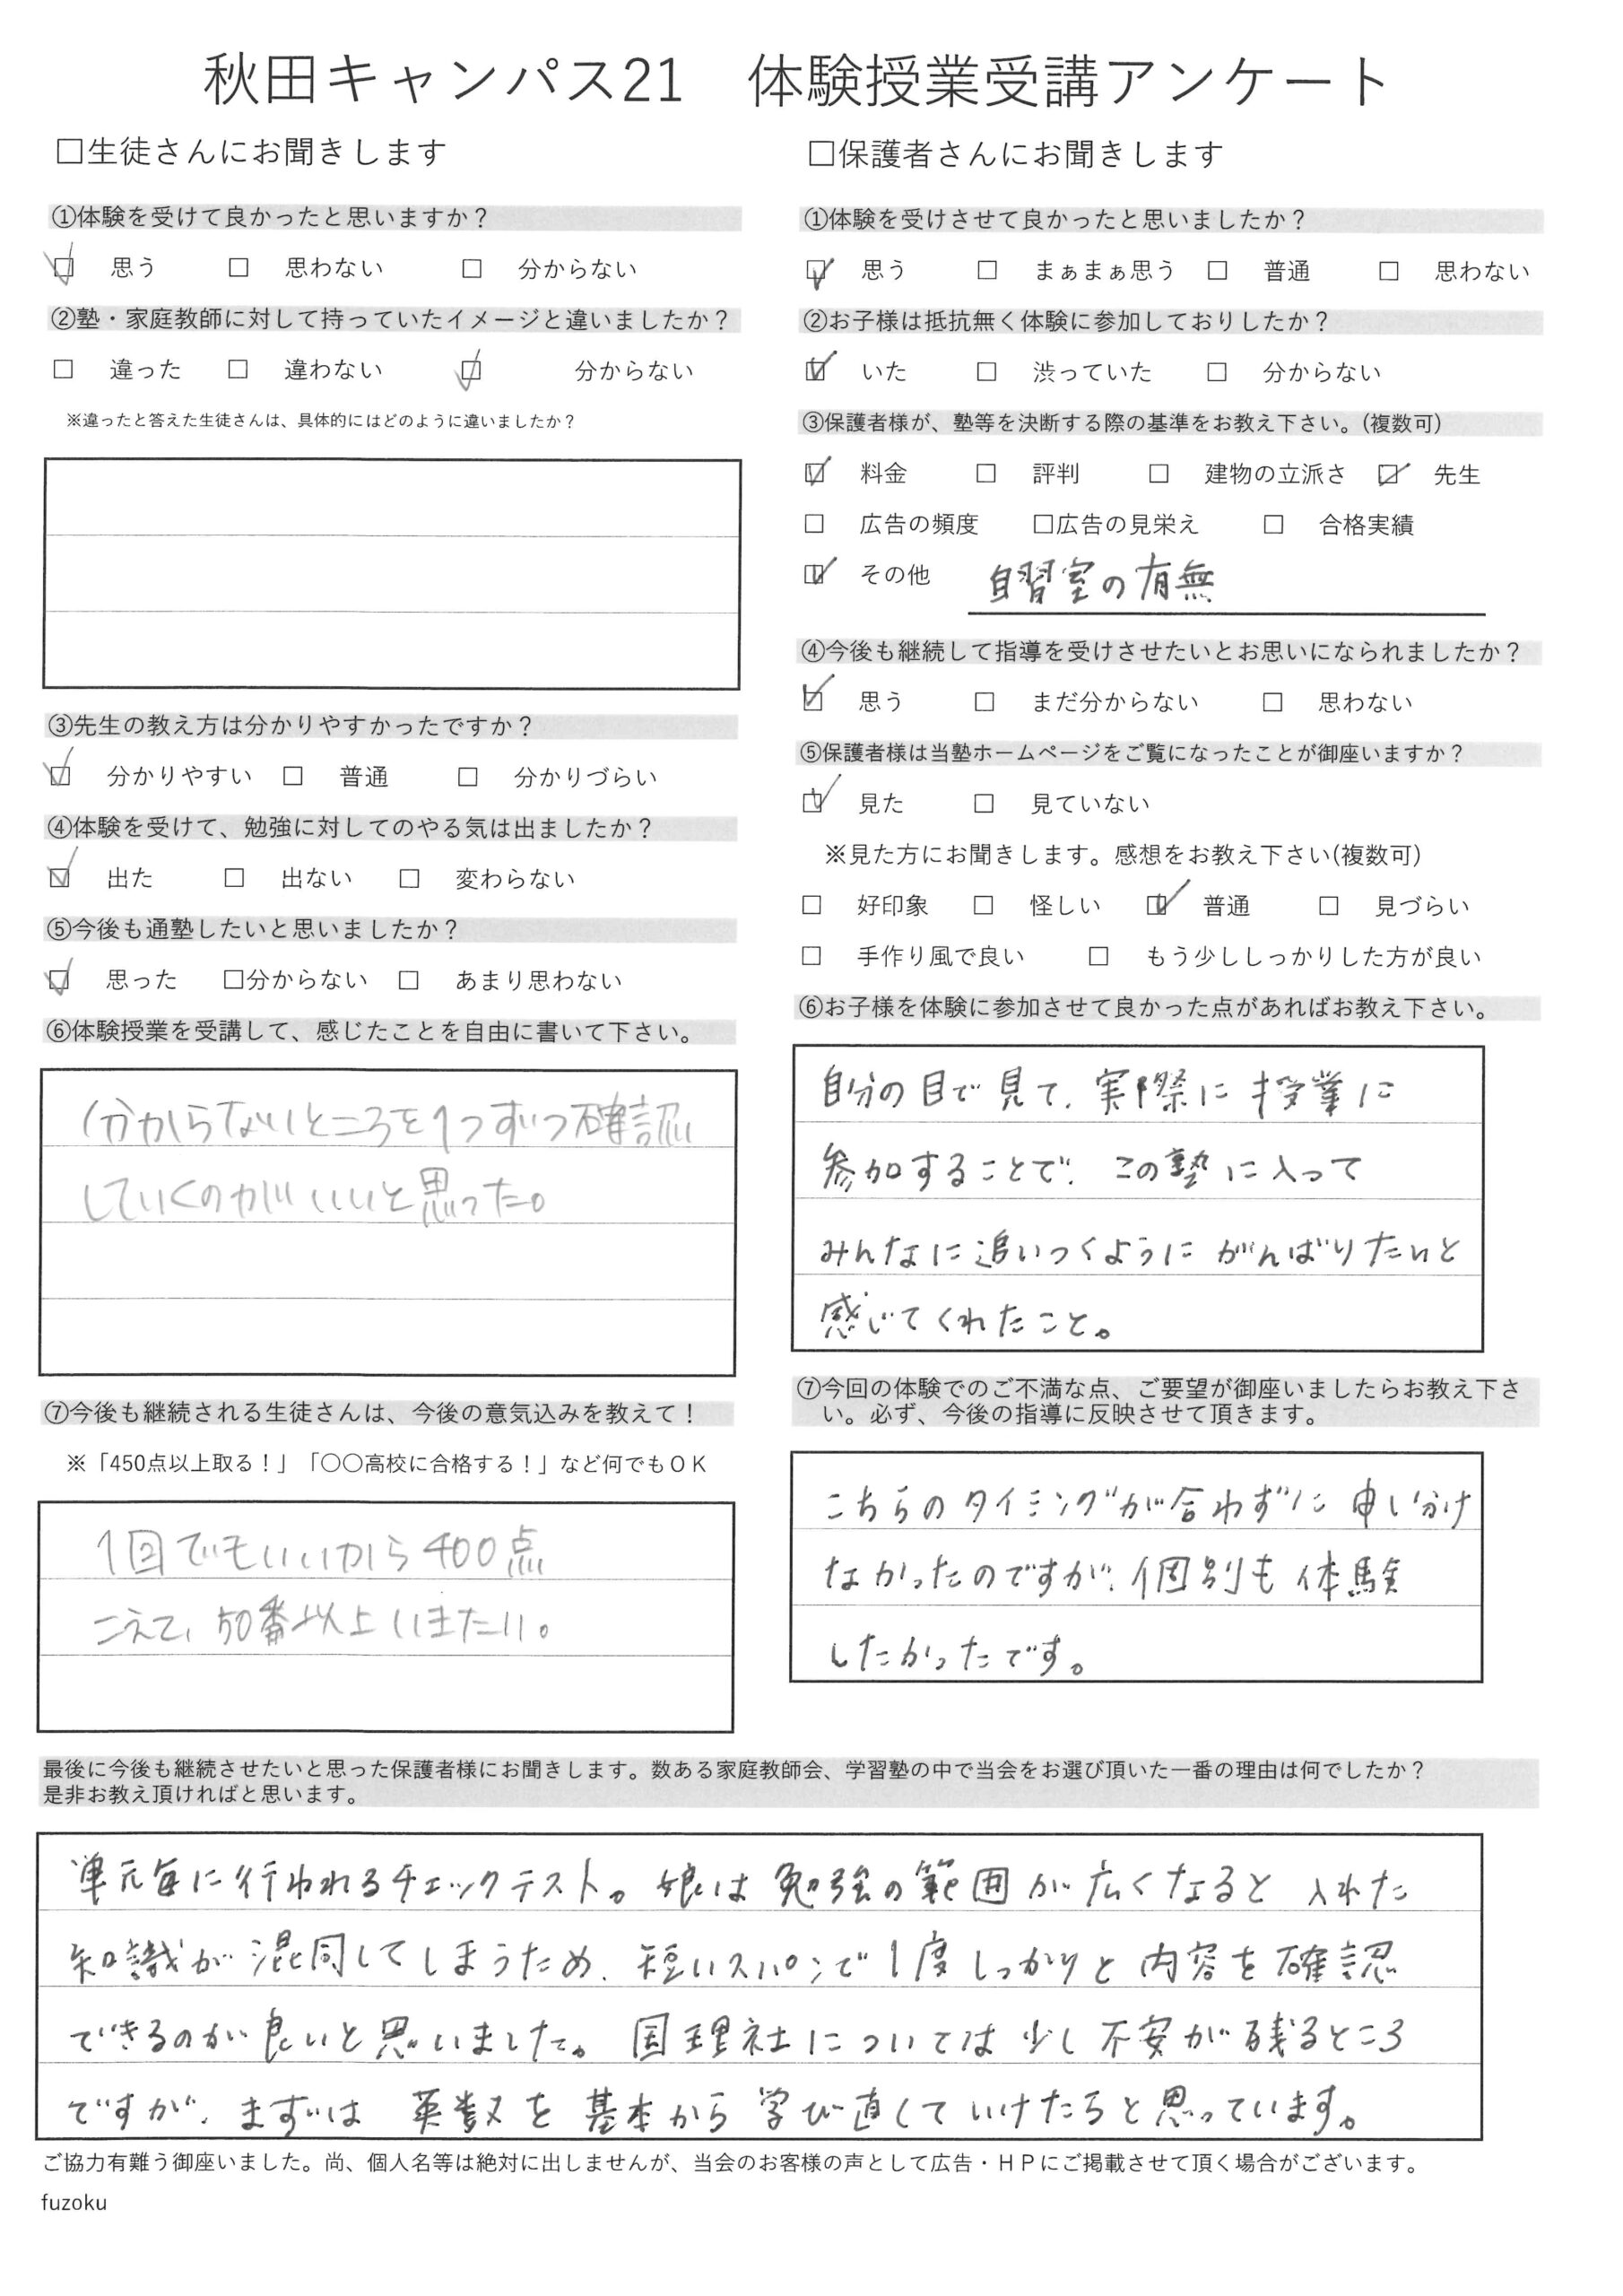 秋田キャンパス21　体験授業受講アンケート
□生徒さんにお聞きします
①体験を受けて良かったと思いますか？
☑ 思う □ 思わない □ 分からない
②塾・家庭教師に対して持っていたイメージと違いましたか？
□ 違った □ 違わない ☑ 分からない
※違ったと答えた生徒さんは、具体的にはどのように違いましたか？
③先生の教え方は分かりやすかったですか？
☑ 分かりやすい □ 普通 □ 分かりづらい
④体験を受けて、勉強に対してのやる気は出ましたか？
☑ 出た □ 出ない □ 変わらない
⑤今後も通塾したいと思いましたか？
☑ 思った □分からない □ あまり思わない
⑥体験授業を受講して、感じたことを自由に書いて下さい。
分からないところを1つずつ確認
していくのがいいと思った。
⑦今後も継続される生徒さんは、今後の意気込みを教えて！
※「450点以上取る！」「〇〇高校に合格する！」など何でもＯＫ
1回でもいいから400点
こえて、50番以上いきたい。
□保護者さんにお聞きします
①体験を受けさせて良かったと思いましたか？
☑ 思う □ まぁまぁ思う □ 普通 □ 思わない
②お子様は抵抗無く体験に参加しておりしたか？
☑ いた □ 渋っていた □ 分からない
③保護者様が、塾等を決断する際の基準をお教え下さい。(複数可)
☑ 料金 □ 評判 □ 建物の立派さ ☑ 先生
□ 広告の頻度 □広告の見栄え □ 合格実績
☑ その他 自習室の有無
④今後も継続して指導を受けさせたいとお思いになられましたか？
☑ 思う □ まだ分からない □ 思わない
⑤保護者様は当塾ホームページをご覧になったことが御座いますか？
☑ 見た □ 見ていない
※見た方にお聞きします。感想をお教え下さい(複数可)
□ 好印象 □ 怪しい ☑ 普通 □ 見づらい
□ 手作り風で良い □ もう少ししっかりした方が良い
⑥お子様を体験に参加させて良かった点があればお教え下さい。
自分の目で見て、実際に授業に
参加することで、この塾に入って
みんなに追いつくようにがんばりたいと
感じてくれたこと。
⑦今回の体験でのご不満な点、ご要望が御座いましたらお教え下さ
い。必ず、今後の指導に反映させて頂きます。
こちらのタイミングが合わずに申し分け
なかったのですが、個別も体験
したかったです。
最後に今後も継続させたいと思った保護者様にお聞きします。数ある家庭教師会、学習塾の中で当会をお選び頂いた一番の理由は何でしたか？
是非お教え頂ければと思います。
単元毎に行われるチェックテスト。娘は勉強の範囲が広くなると入れた
知識が混同してしまうため、短いスパンで1度しっかりと内容を確認
できるのが良いと思いました。国理社については少し不安が残るところ
ですが、まずは英数を基本から学び直していけたらと思っています。
ご協力有難う御座いました。尚、個人名等は絶対に出しませんが、当会のお客様の声として広告・ＨＰにご掲載させて頂く場合がございます。
fuzoku